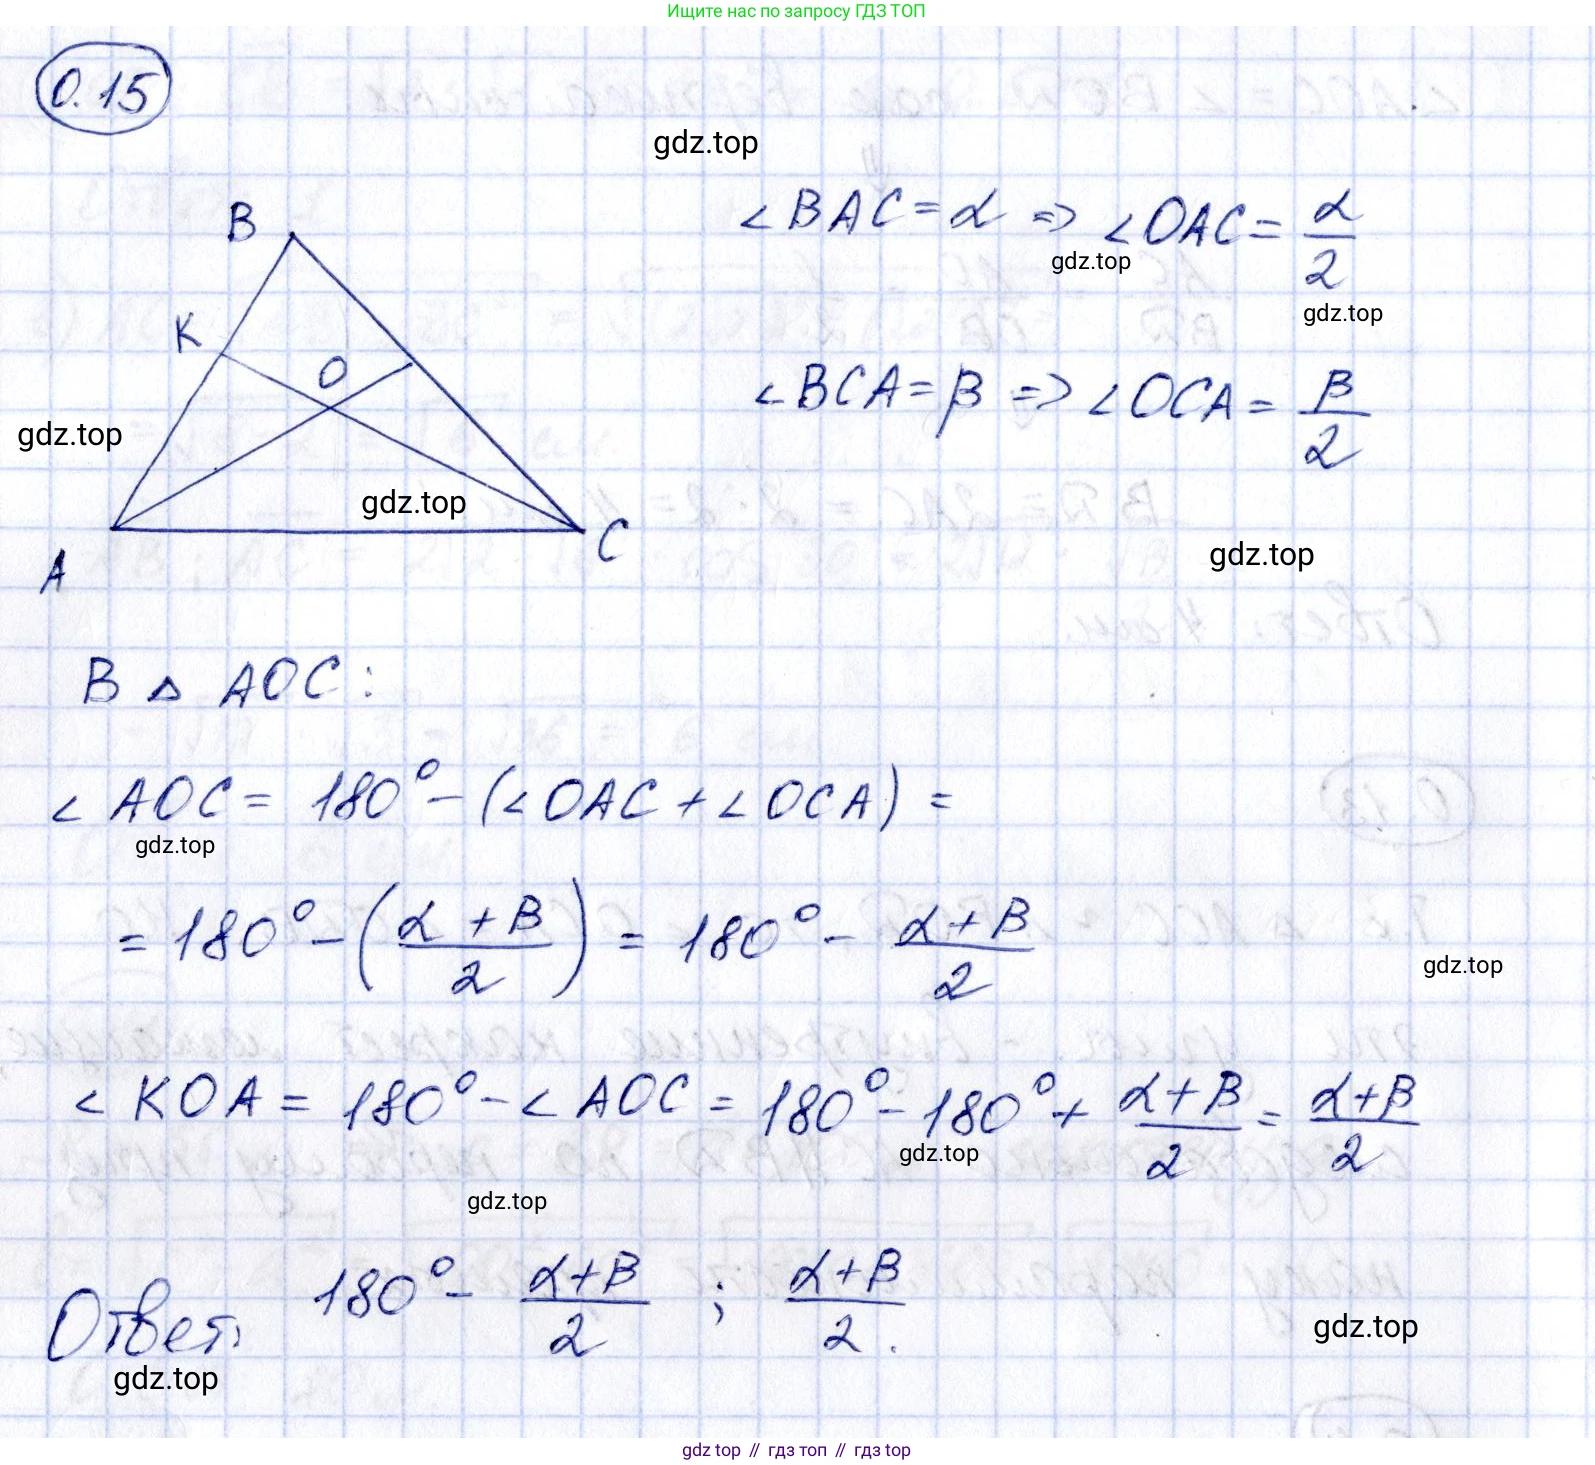 Ищите нас по запросу ГДЗ ТОП
0.15
gdz.top
B
∠BAC = α => ∠OAC = α/2
gdz.top
gdz.top
K
O
∠BCA = β => ∠OCA = β/2
gdz.top
gdz.top
A
C
gdz.top
В △ AOC:
∠AOC = 180° - (∠OAC + ∠OCA) =
gdz.top
= 180° - ((α + β)/2) = 180° - (α + β)/2
gdz.top
∠KOA = 180° - ∠AOC = 180° - 180° + (α+β)/2 = (α+β)/2
gdz.top
gdz.top
Ответ: 180° - (α+β)/2 ; (α+β)/2.
gdz.top
gdz.top
gdz top // гдз топ // гдз top